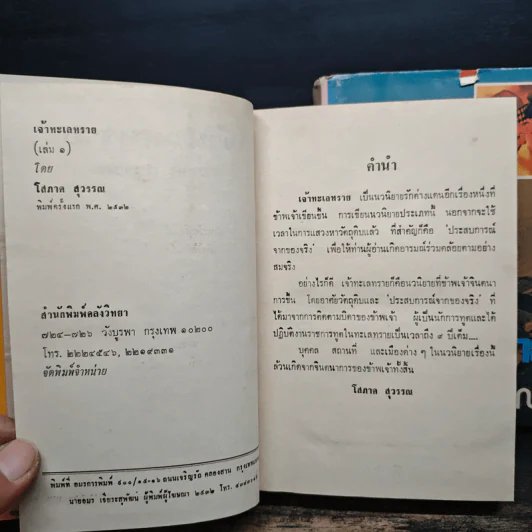 เจ้าทะเลทราย
(เล่ม ๑)
โดย
โสภาค สุวรรณ
พิมพ์ครั้งแรก พ.ศ. ๒๕๓๒
สำนักพิมพ์คลังวิทยา
๗๒๔–๗๒๖ วังบูรพา กรุงเทพ ๑๐๒๐๐
โทร. ๒๒๒๔๕๔๖, ๒๒๑๙๓๓๑
จัดพิมพ์จำหน่าย
พิมพ์ที่ อมรการพิมพ์ ถนนเจริญรัถ คลองสาน
นายอมร ผู้พิมพ์ผู้โฆษณา ๒๕๓๒ โทร.
คำนำ
เจ้าทะเลทราย เป็นนวนิยายรักต่างแดนอีกเรื่องหนึ่งที่
ข้าพเจ้าเขียนขึ้น การเขียนนวนิยายประเภทนี้ นอกจากจะใช้
เวลาในการแสวงหาวัตถุดิบแล้ว ที่สำคัญก็คือ 'ประสบการณ์
จากของจริง' เพื่อให้ท่านผู้อ่านเกิดอารมณ์ร่วมคล้อยตามอย่าง
สมจริง
อย่างไรก็ดี เจ้าทะเลทรายก็คือนวนิยายที่ข้าพเจ้าจินตนา
การขึ้น โดยอาศัยวัตถุดิบและ 'ประสบการณ์จากของจริง' ที่
ได้มาจากการติดตามบิดาของข้าพเจ้า ผู้เป็นนักการทูตและได้
ปฏิบัติงานราชการทูตในทะเลทรายเป็นเวลาถึง ๙ ปีเต็ม...
บุคคล สถานที่ และเมืองต่าง ๆ ในนวนิยายเรื่องนี้
ล้วนเกิดจากจินตนาการของข้าพเจ้าทั้งสิ้น
โสภาค สุวรรณ